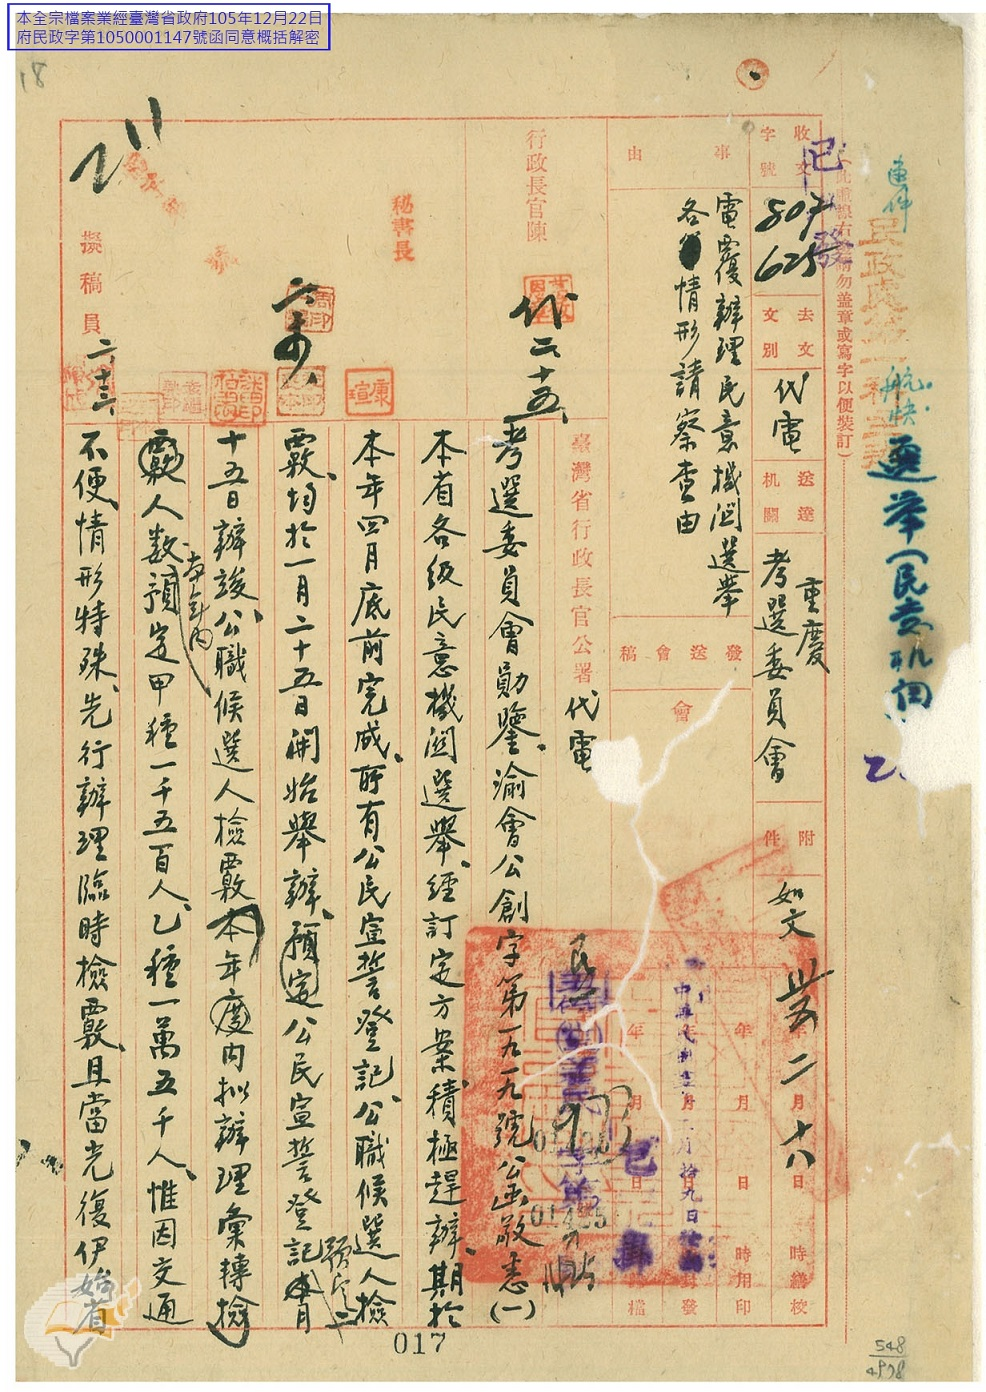 本全宗檔案業經臺灣省政府105年12月22日
府民政字第1050001147號函同意概括解密
18
速件
航快
選舉(民意机
民政處第一科
(此處線右請勿蓋章或寫字以便裝訂)
已發
收文字號
807
625
去文文別
代電
送達机關
重慶
考選委員會
附件
如文
卅五 二 十八
事由
電覆辦理民意機関選舉
各情形請察查由
發送會稿
會
年月日時繕校
年月日時用印
年月日封發
年月日歸檔
中華民國
月拾九日
已歸
臺灣省行政長官公署
代電
行政長官陳
代
二十五
秘書長
康瑄
擬稿員
二、十三
考選委員會勛鑒、渝會公創字第一九一九號公函敬悉(一)
本省各級民意機関選舉、經訂定方案、積極趕辦、期於
本年四月底前完成、所有公民宣誓登記、公職候選人檢
覈、均於一月二十五日開始舉辦、預定公民宣誓登記本月
預定二
十五日辦竣、公職候選人檢覈本年度內拟辦理彙轉檢
覈人數預定甲種一千五百人、乙種一萬五千人、惟因交通
本年內
不便、情形特殊、先行辦理臨時檢覈、且當光復伊始、省
017
548
4978